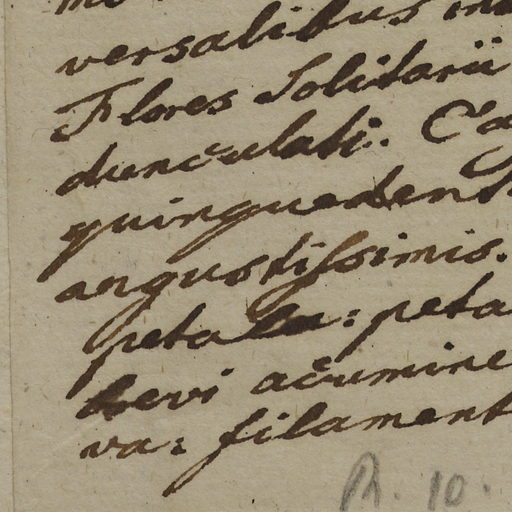 versalibus in
Flores Solitarii
dunculati. Ca
quinquedent
angustissimis.
peta : peta
brevi acumine
va: filament
R. 10.